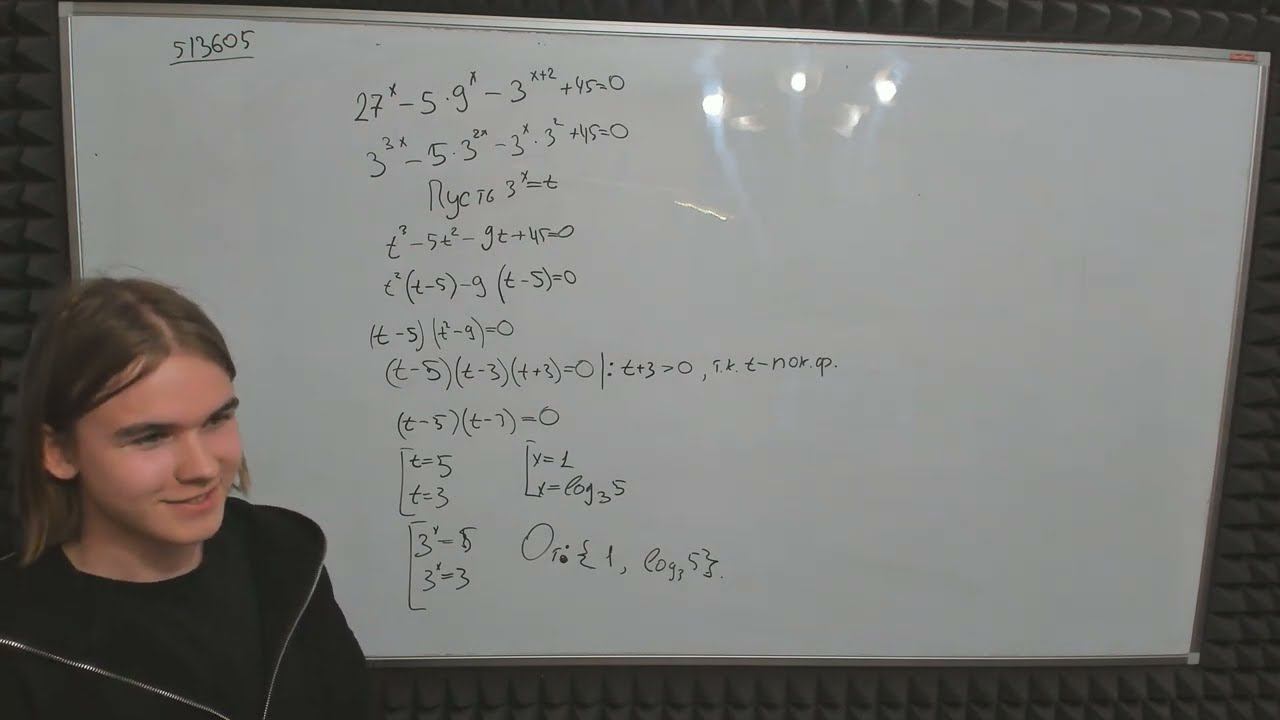 513605
27^x − 5 · 9^x − 3^{x+2} + 45 = 0
3^{3x} − 5 · 3^{2x} − 3^x · 3^2 + 45 = 0
Пусть 3^x = t
t^3 − 5t^2 − 9t + 45 = 0
t^2 (t − 5) − 9 (t − 5) = 0
(t − 5) (t^2 − 9) = 0
(t − 5) (t − 3) (t + 3) = 0 | : t + 3 > 0 , т.к. t − пок. ф.
(t − 5) (t − 3) = 0
[ t = 5
t = 3
[ x = 1
x = log_3 5
[ 3^x = 5
3^x = 3
От: { 1 , log_3 5 }.